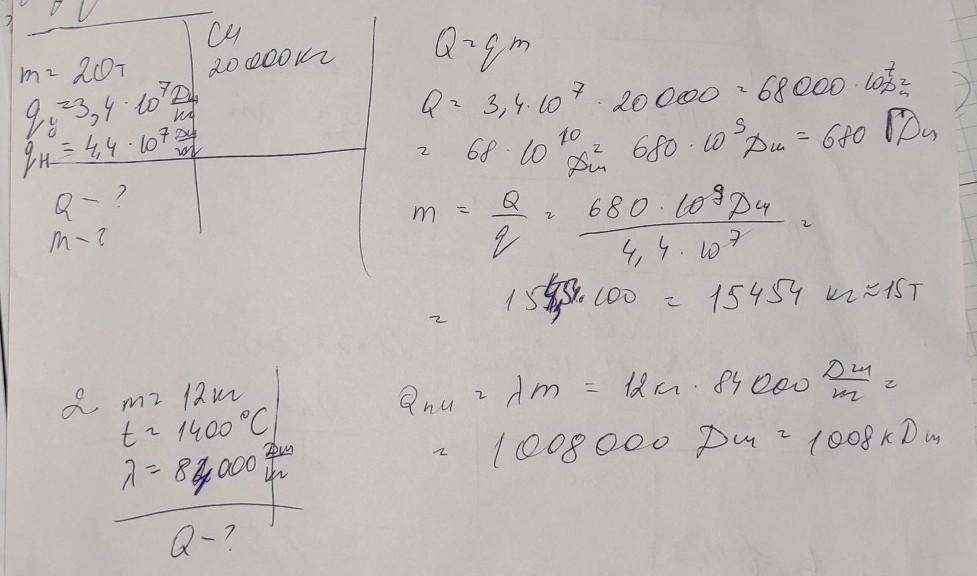 m = 20т
СИ
20 000 кг
q_у = 3,4 · 10^7 Дж/кг
q_н = 4,4 · 10^7 Дж/кг
Q - ?
m - ?
Q = qm
Q = 3,4 · 10^7 · 20 000 = 68000 · 10^7 Дж =
= 68 · 10^10 Дж = 680 · 10^9 Дж = 680 ГДж
m = Q/q = 680 · 10^9 Дж / 4,4 · 10^7 =
= 100 = 15454 кг ≈ 15т
2 m = 12кг
t = 1400 °C
λ = 84000 Дж/кг
Q - ?
Q пл = λm = 12кг · 84 000 Дж/кг =
= 1008000 Дж = 1008 кДж